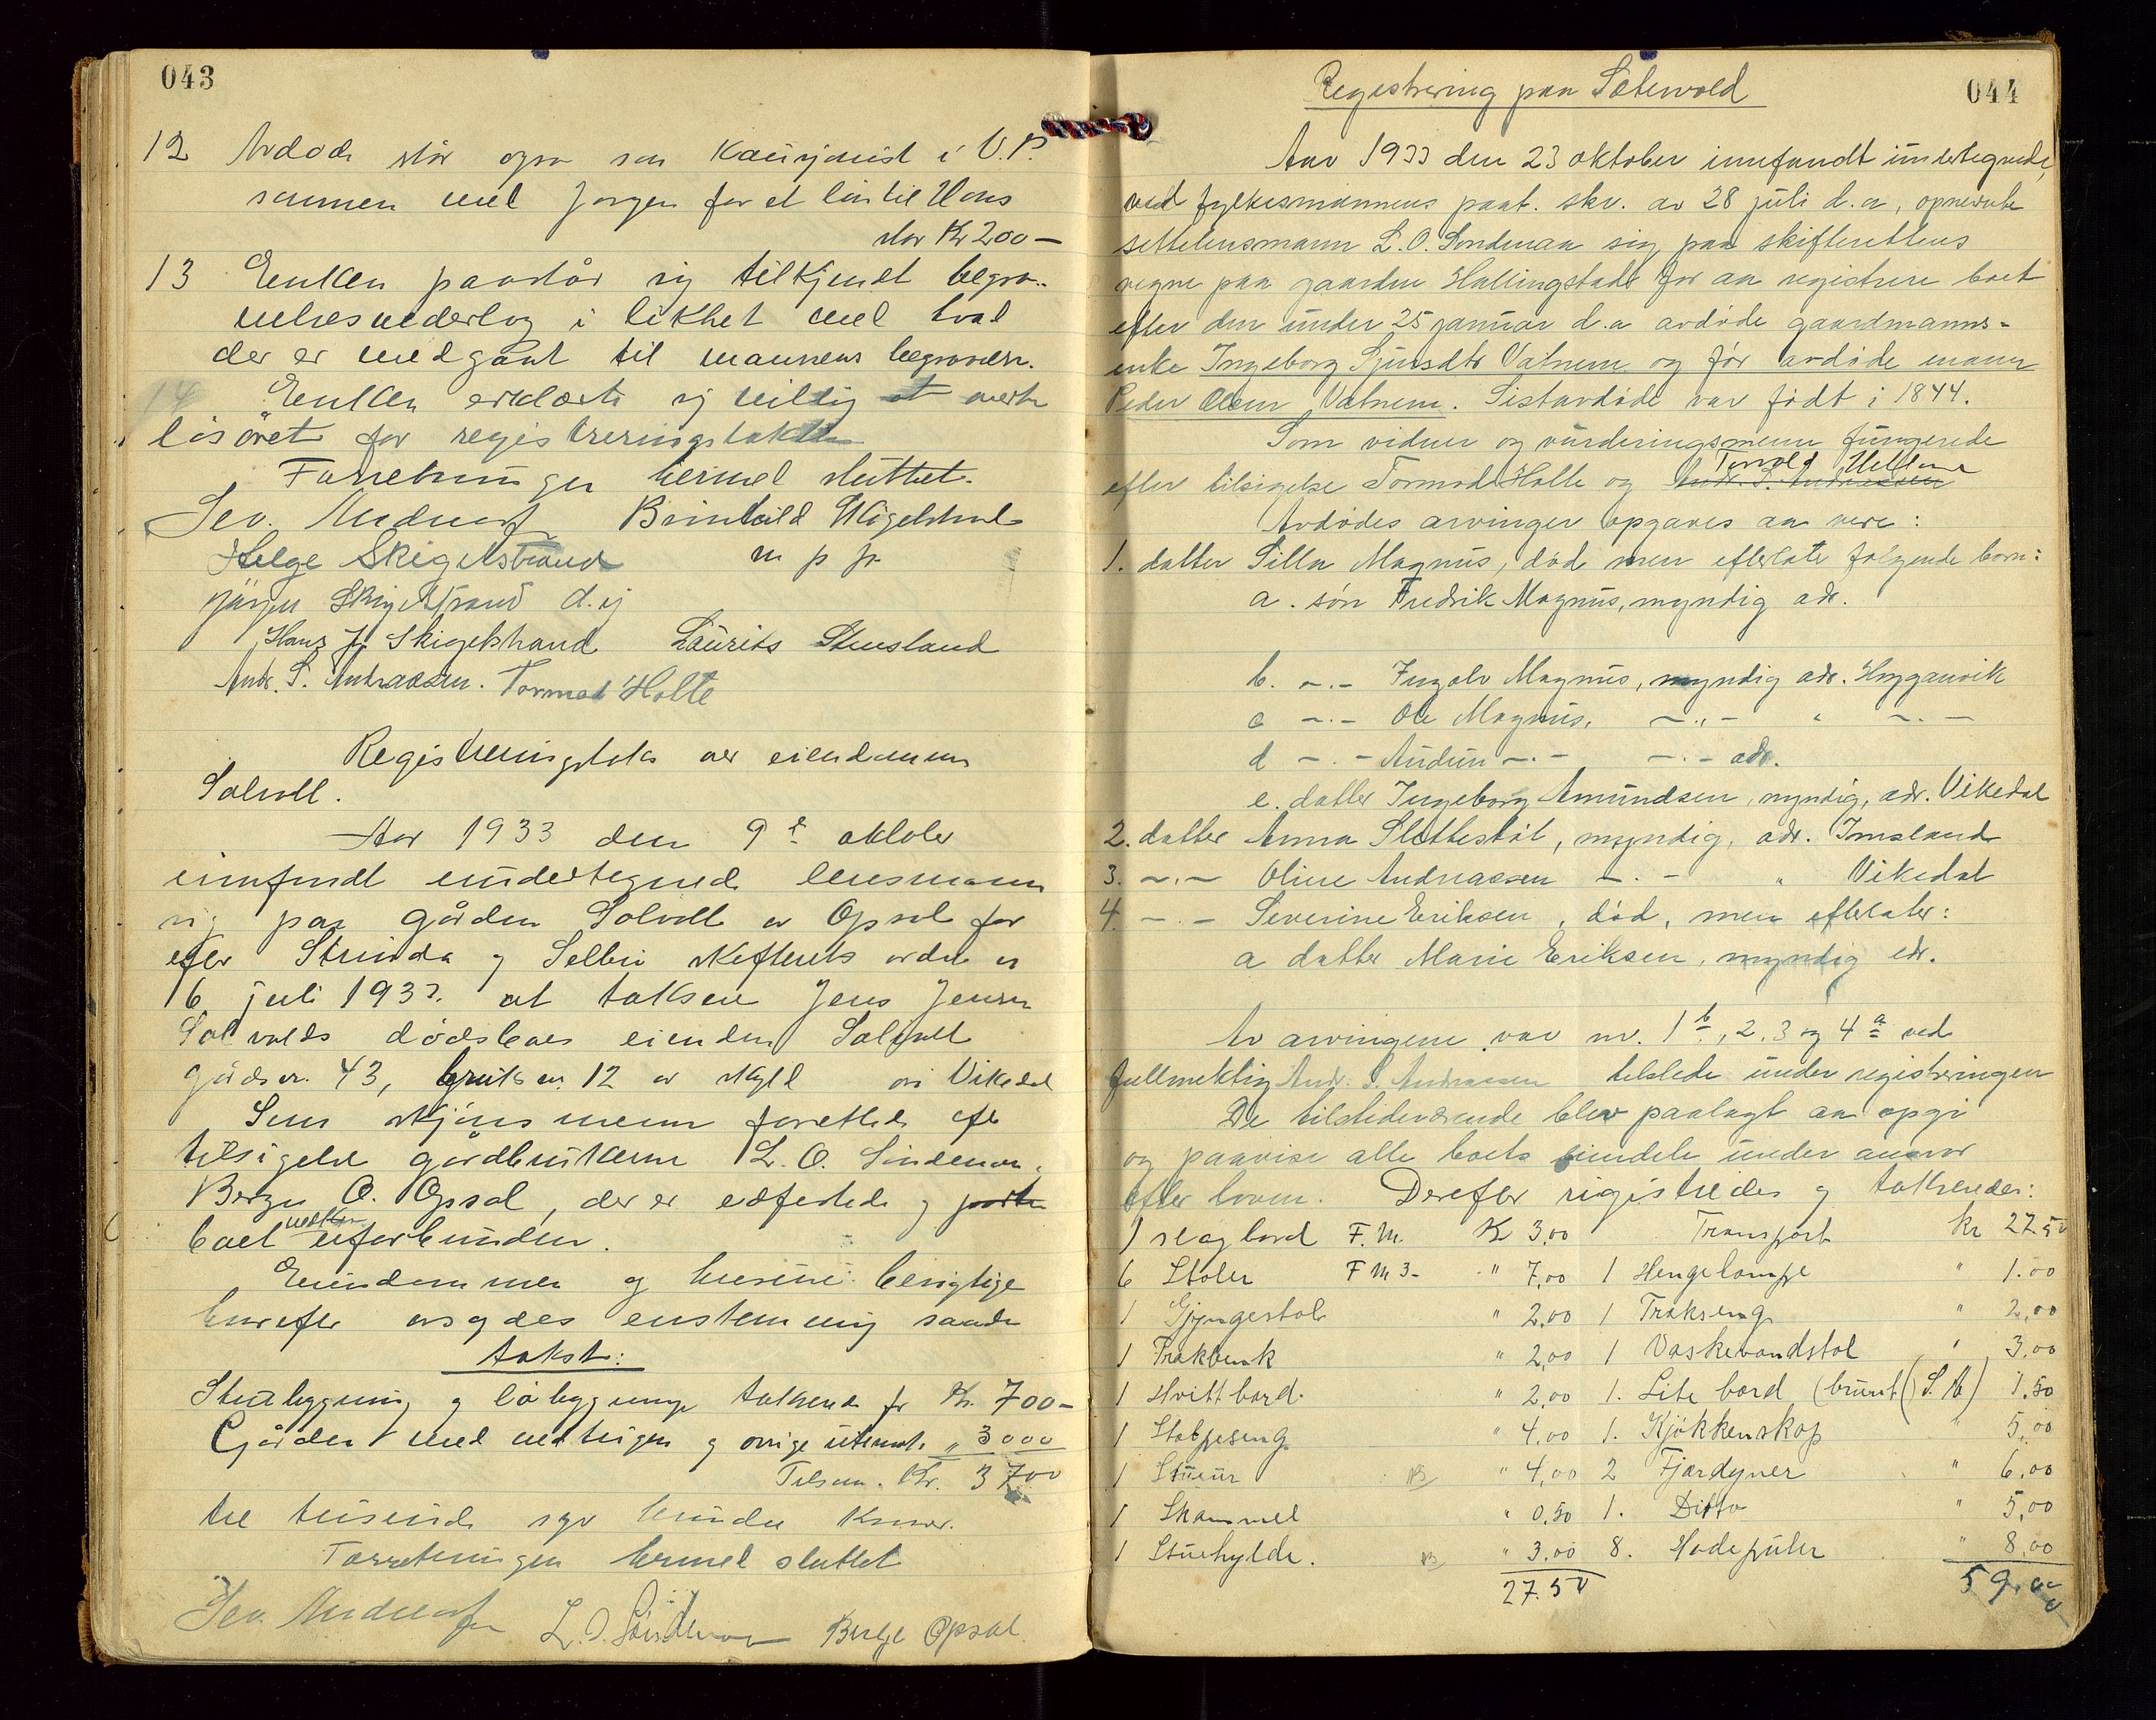 043
12 Avdøde står ogsa som Kausjonist i V.P.
sammen med Jørgen for et lån til Hans
stor Kr 200 –
13 Enken paastår sig tilkjendt begra-
velsesvederlag i likhet med hvad
der er medgånt til mannens begravelse.
14 Enken erklærte sig villig at overta
løsøret for registreringstaksten
Forretningen hermed sluttet.
Sev. Andreasen Brinhild Skigelstrand
Helge Skigelstrand m p p.
Jørgen Skigelstrand d. y
Hans J. Skigelstrand Laurits Stensland
Andr. S. Andreassen. Tormod Holte
Registreringstakst over eiendommen
Solvoll.
Aar 1933 den 9de oktober
innfandt undertegnede lensmann
sig paa gården Solvoll av Opsal for
efter Strinda og Selbu skifteretts ordre av
16 juli 1933. at taksere Jens Jensen
Solvolds dødsboes eiendom Solvoll
gårdsnr. 43, bruks nr. 12 av skyld i Vikedal
Som skjønsmenn forrettede efter
tilsigelse gårdbrukerne L. O. Søndenaa,
Berge O. Opsal, der er edfestede og parten
boet uforbunden.
Eiendommen og husene besigtiges
hvorefter avgaves enstemmig saadan
takst:
Stuebygning og låbygninge takseret for Kr. 700 –
Gården med utmark " 3000
Tilsam. Kr. 3700
tre tusinde syv hundre Kroner.
Forretningen hermed sluttet
Sev. Andreasen L. O. Søndenaa Berge Opsal
044
Registrering paa Sætervold
Aar 1933 den 23 oktober innfandt undertegnede,
ved fylkesmannens paat. skr. av 28 juli d.a, opnevnte
settelensmann L. O. Søndenaa sig paa skifterettens
vegne paa gaarden Hallingstad for aa registrere boet
efter den under 25 januar d.a avdøde gaardmanns-
enke Ingeborg Sjursdtr Vatnem og før avdøde mann
Peder Olsen Vatnem. Sistavdøde var født i 1844.
Som vidner og vurderingsmenn fungerede
efter tilsigelse Tormod Holte og Andr. S. Andreassen
Avdødes arvinger opgaves aa være:
1. datter Silla Magnus, død men efterlate følgende børn:
a. søn Fredrik Magnus, myndig adr.
b. –.– Ingolv Magnus, myndig adr. Høgganvik
c –.– Ole Magnus, –.– " –.–
d –.– Audun –.– –.– adr.
e. datter Ingeborg Amundsen, myndig, adr. Vikedal
2. datter Anna Slettestøl, myndig, adr. Imsland
3. –.– Oline Andreassen –.– " Vikedal
4. –.– Severine Eriksen, død, men efterlater:
a datter Marie Eriksen, myndig adr.
Av arvingene var nr. 1 b, 2, 3 og 4 a ved
fullmektig Andr. S. Andreassen tilstede under registreringen
De tilstedeværende blev paalagt aa opgi
og paavise alle boets eiendele under ansvar
efter loven. Derefter registredes og takseredes:
1 slagbord F.M. Kr 3,00 Transport kr 27.50
6 Stoler F M 3- " 7,00 1 Hengelampe " 1.00
1 Gjyngestol " 2,00 1 Trækseng " 2,00
1 Trækbenk " 2,00 1 Vaskevandstol " 3,00
1 Hvitt bord. " 2,00 1. Lite bord (brunt) (S. M) 1,50
1 Stolpeseng " 4,00 1. Kjøkkenskap " 5,00
1 Stueur " 4,00 2 Fjærdyner " 6,00
1 Skammel " 0,50 1. Ditto " 5,00
1 Stuehylde. " 3,00 8. Hodeputer " 8,00
27.50 59.00